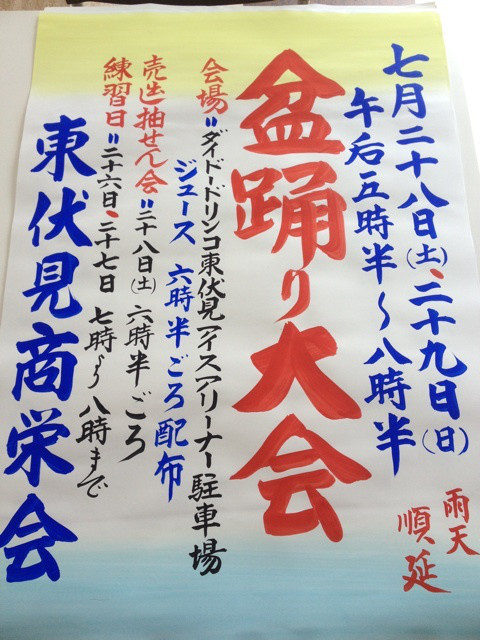 七月二十八日(土)、二十九日(日)
午后五時半〜八時半
雨天
順延
盆踊り大会
会場〃ダイドードリンコ東伏見アイスアリーナー駐車場
ジュース 六時半ごろ配布
売出抽せん会〃二十八日(土)六時半ごろ
練習日〃二十六日、二十七日 七時〜八時まで
東伏見商栄会